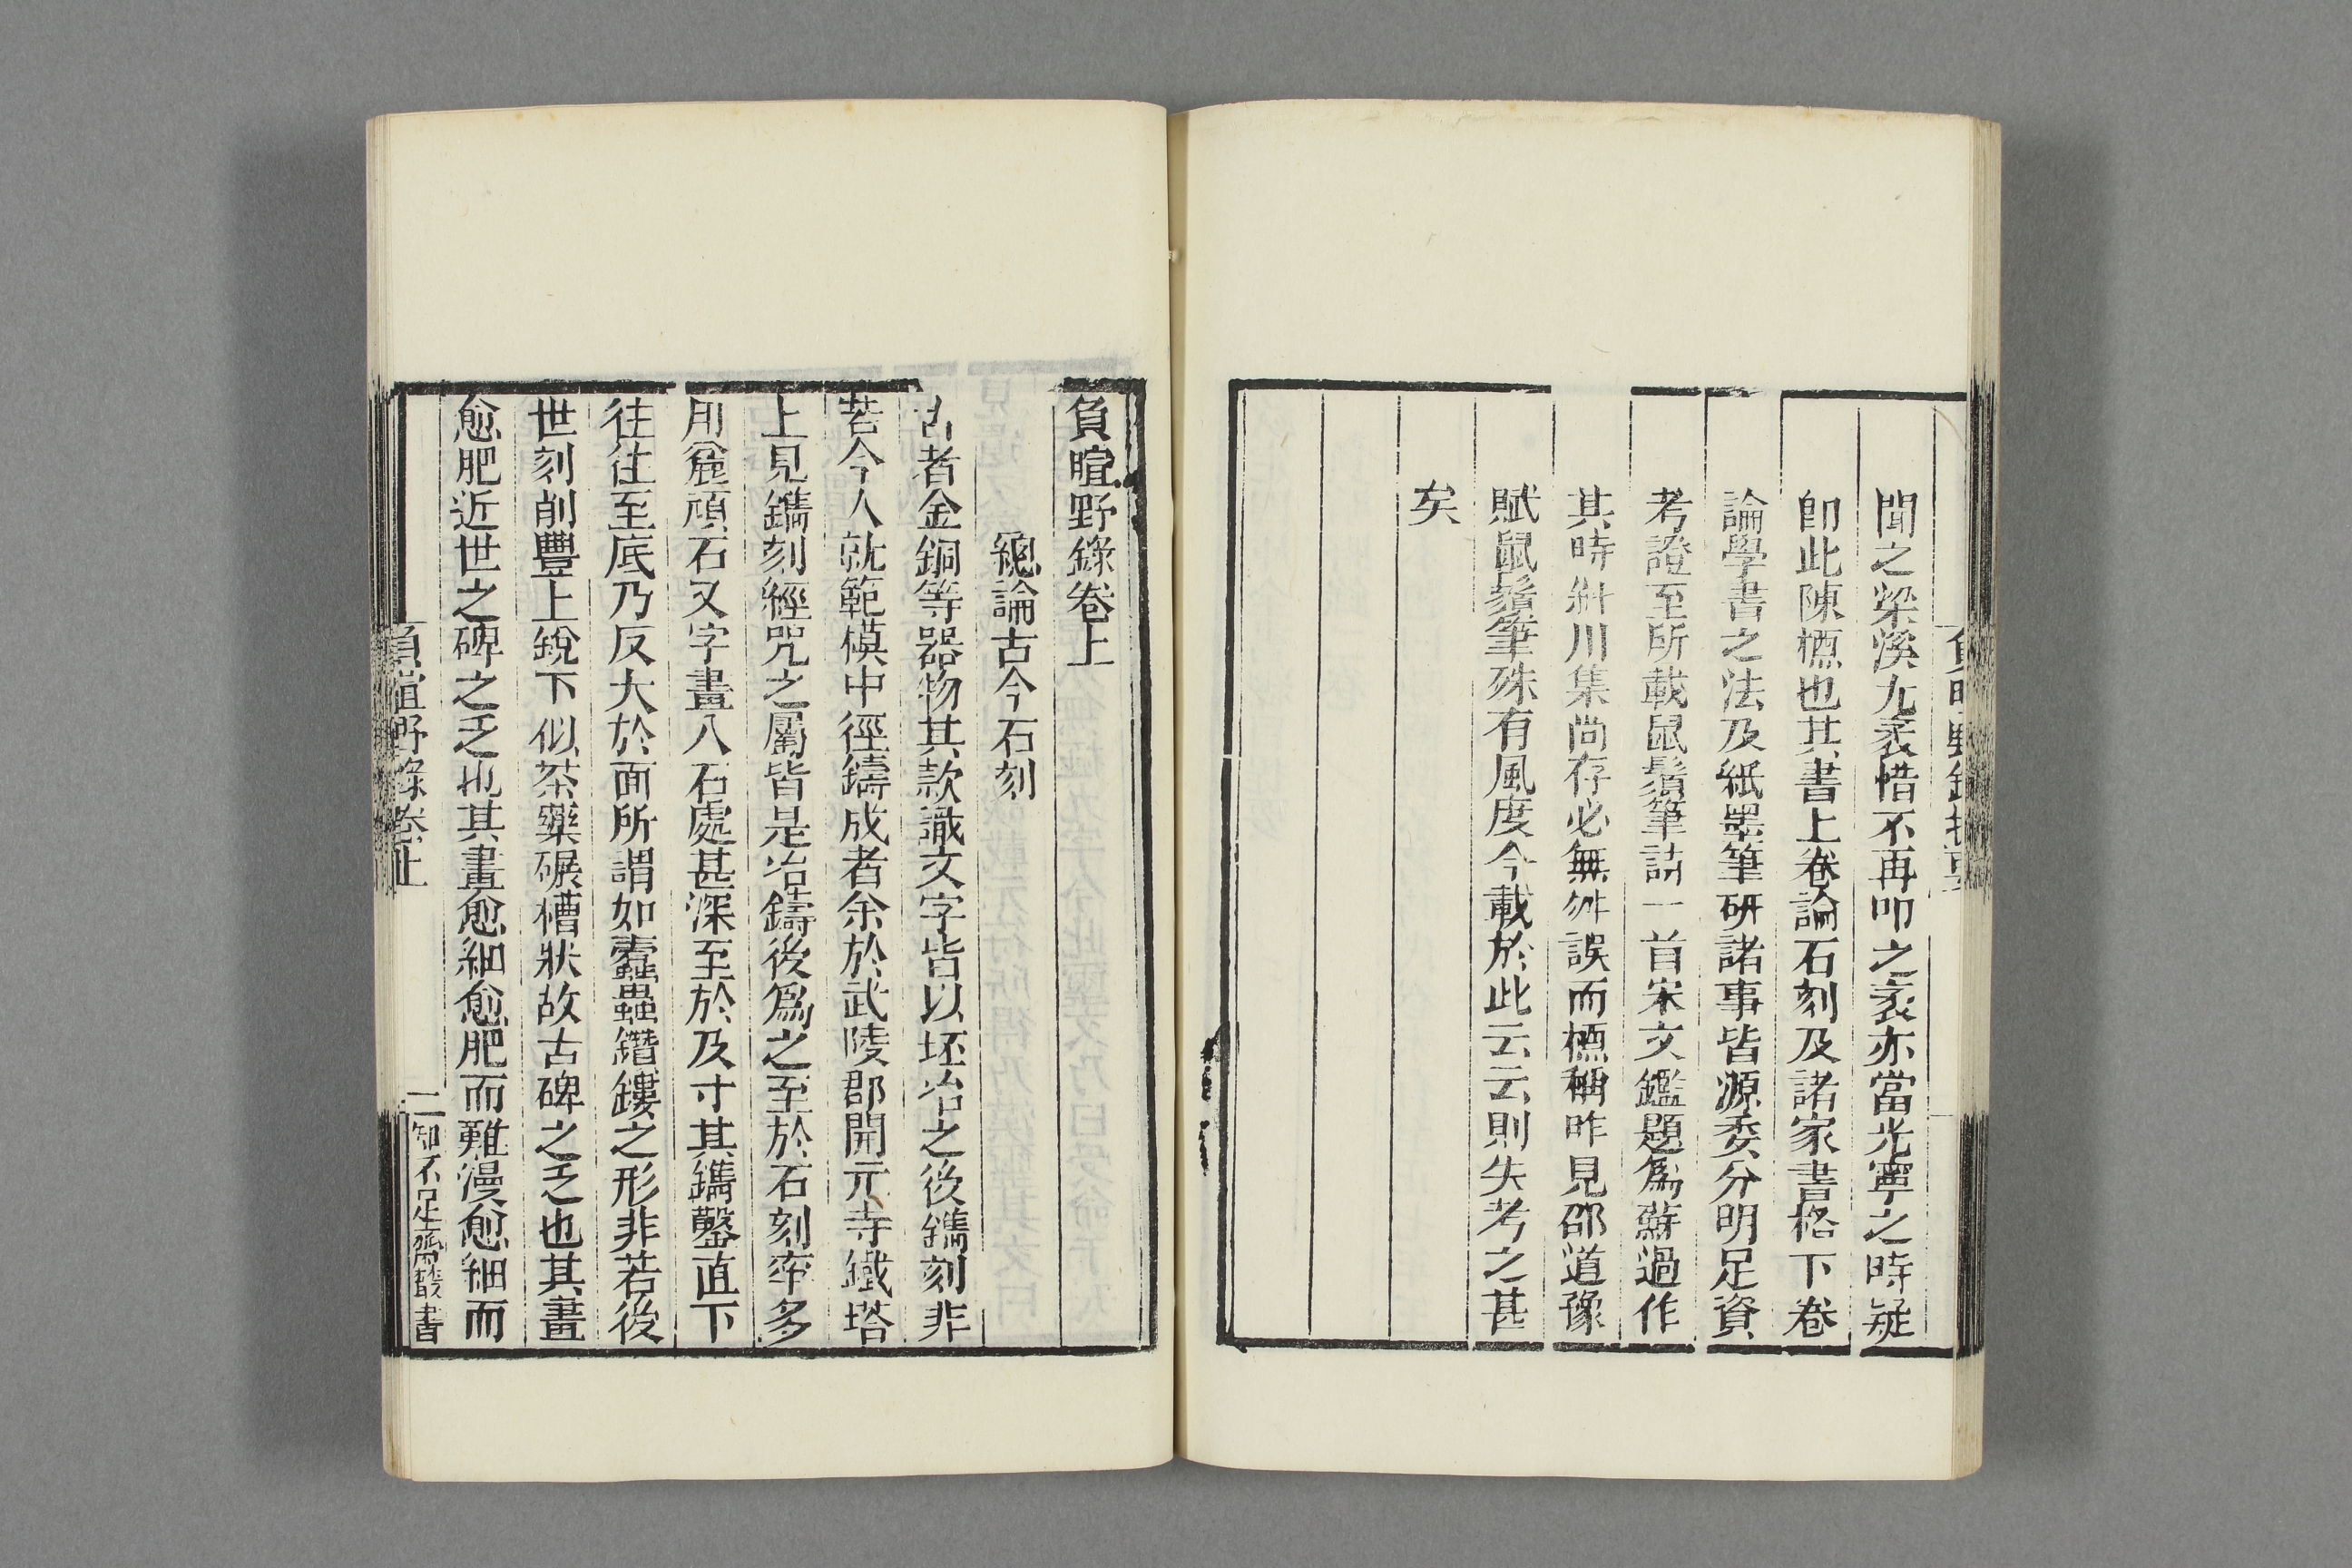 聞之梁溪尤袤惜不再叩之袤亦當光寧之時疑
卽此陳槱也其書上卷論石刻及諸家書格下卷
論學書之法及紙墨筆研諸事皆源委分明足資
考證至所載鼠鬚筆詩一首宋文鑑題爲蘇過作
其時斜川集尚存必無舛誤而槱稱昨見邵道豫
賦鼠鬚筆殊有風度今載於此云云則失考之甚
矣
負暄野錄卷上
總論古今石刻
古者金銅等器物其款識文字皆以坯冶之後鐫刻非
若今人就範模中徑鑄成者余於武陵郡開元寺鐵塔
上見鐫刻經咒之屬皆是冶鑄後爲之至於石刻率多
用麄頑石又字畫入石處甚深至於及寸其鐫鑿直下
往往至底乃反大於面所謂如蠹蟲鑽鏤之形非若後
世刻削豐上銳下似茶藥碾槽狀故古碑之乏也其畫
愈肥近世之碑之乏也其畫愈細愈肥而難漫愈細而
負暄野錄卷上
二
知不足齋叢書